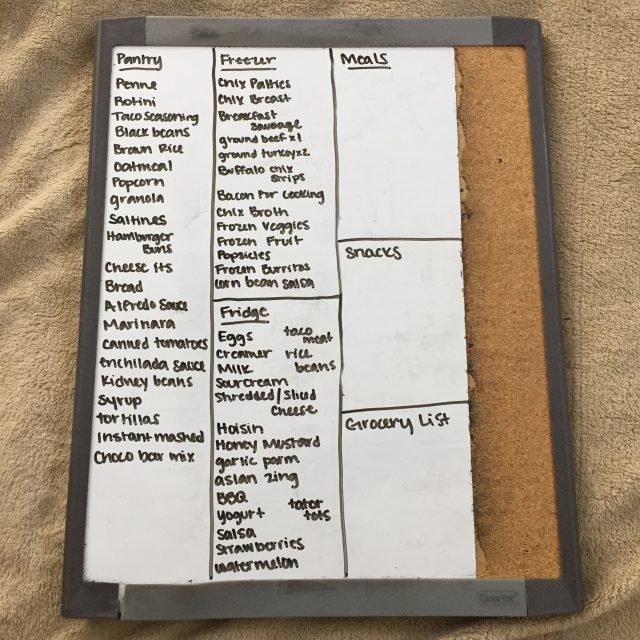 Pantry
Penne
Rotini
Taco seasoning
Black beans
Brown Rice
Oatmeal
Popcorn
granola
Saltines
Hamburger
Buns
Cheese Its
Bread
Alfredo Sauce
Marinara
canned tomatoes
enchilada sauce
Kidney beans
Syrup
tortillas
Instant mashed
Choco bar mix
Freezer
Chix Patties
Chix Breast
Breakfast
Sausage
ground beef x1
ground turkey x2
Buffalo chix
strips
Bacon for Cooking
Chix Broth
Frozen Veggies
Frozen Fruit
Popsicles
Frozen Burritos
corn bean salsa
Fridge
Eggs
taco
meat
Creamer
rice
Milk
beans
Sourcream
Shredded/Sliced
Cheese
Hoisin
Honey Mustard
garlic parm
asian zing
BBQ
yogurt
tator
tots
Salsa
Strawberries
watermelon
Meals
Snacks
Grocery List
Quartet